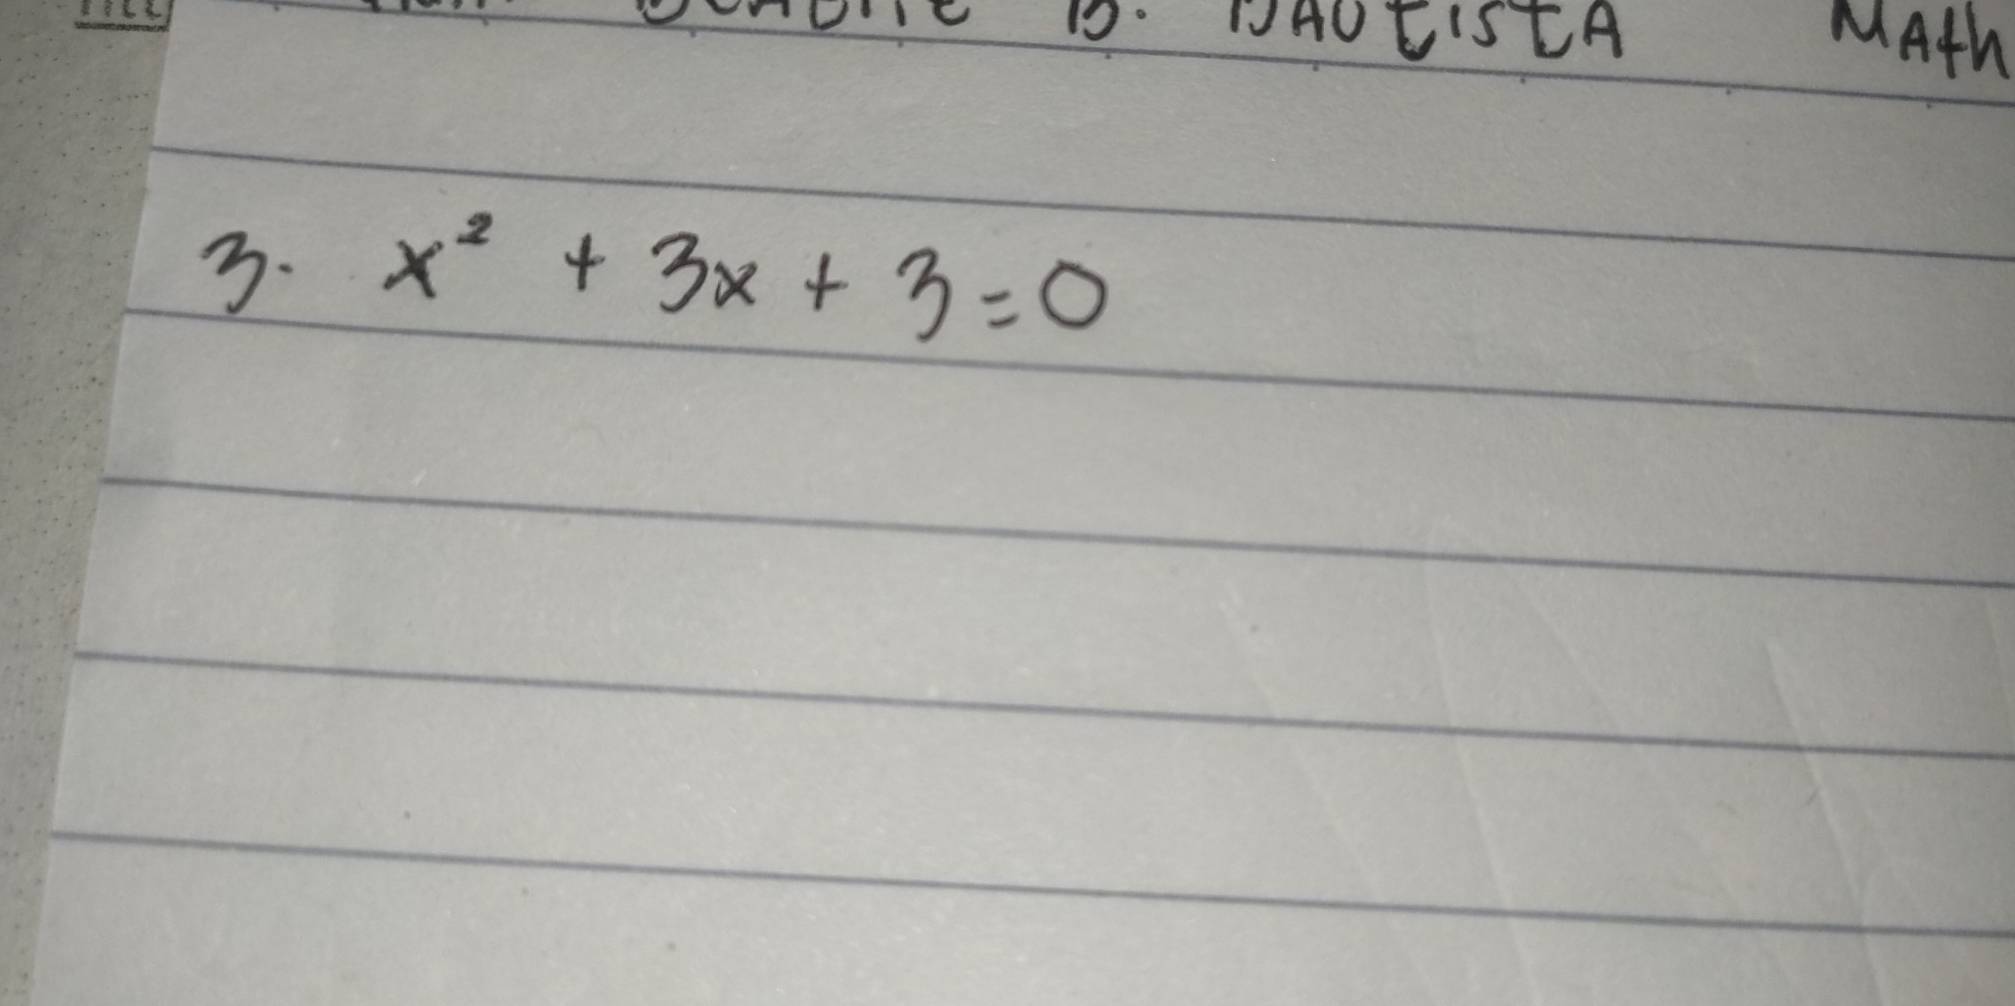 B. BAUtistA MAth
3. x² + 3x + 3 = 0